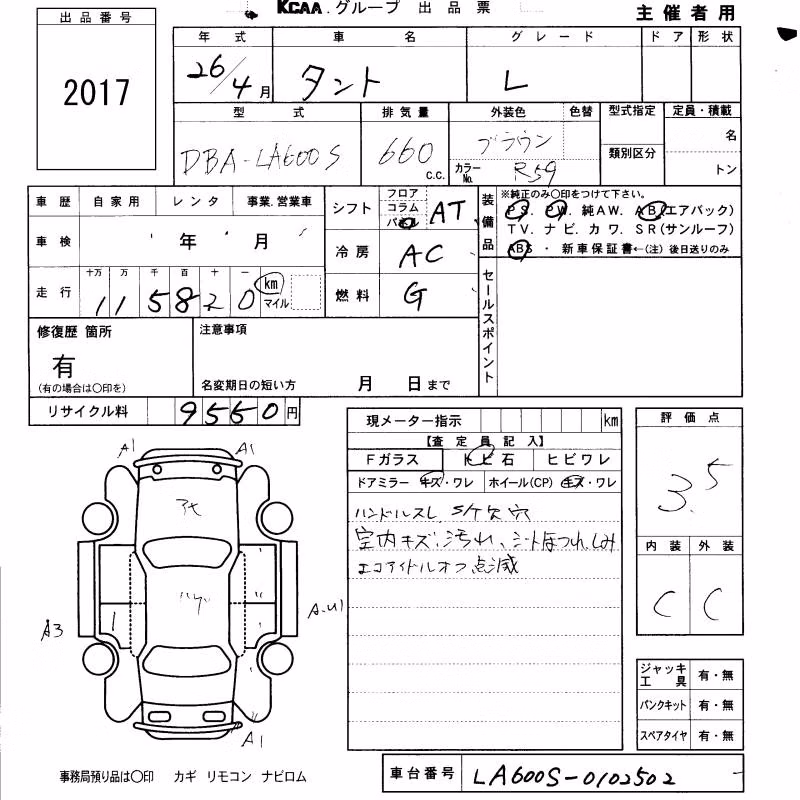 KCAA. グループ 出品票
主催者用
出品番号
2017
年式 車名 グレード ドア 形状
26/4月 タント L
型式 排気量 外装色 色替 型式指定 定員・積載
DBA-LA600S 660 c.c. ブラウン 名
カラーNo. R59 類別区分 トン
車歴 自家用 レンタ 事業.営業車
シフト フロア コラム パネル AT
装備品
※純正のみ〇印をつけて下さい。
PS. PW. 純AW. AB(エアバック)
TV. ナビ. カワ. SR(サンルーフ)
ABS ・ 新車保証書←(注) 後日送りのみ
車検 年 月
冷房 AC
走行 十万 万 千 百 十 一
115820 km マイル
燃料 G
セールスポイント
修復歴 箇所
有
(有の場合は〇印を)
注意事項
名変期日の短い方 月 日まで
リサイクル料 9550円
現メーター指示 km
【査定員記入】
Fガラス トビ石 ヒビワレ
ドアミラー キズ・ワレ ホイール(CP) キズ・ワレ
ハンドルスレ
室内キズ、汚れ、シートほつれ、しみ
エコアイドルオフ点滅
評価点
3.5
内装 外装
C C
A1 A1
A3
A.U1
A1
ジャッキ工具 有・無
パンクキット 有・無
スペアタイヤ 有・無
事務局預り品は〇印 カギ リモコン ナビロム
車台番号 LA600S-0102502